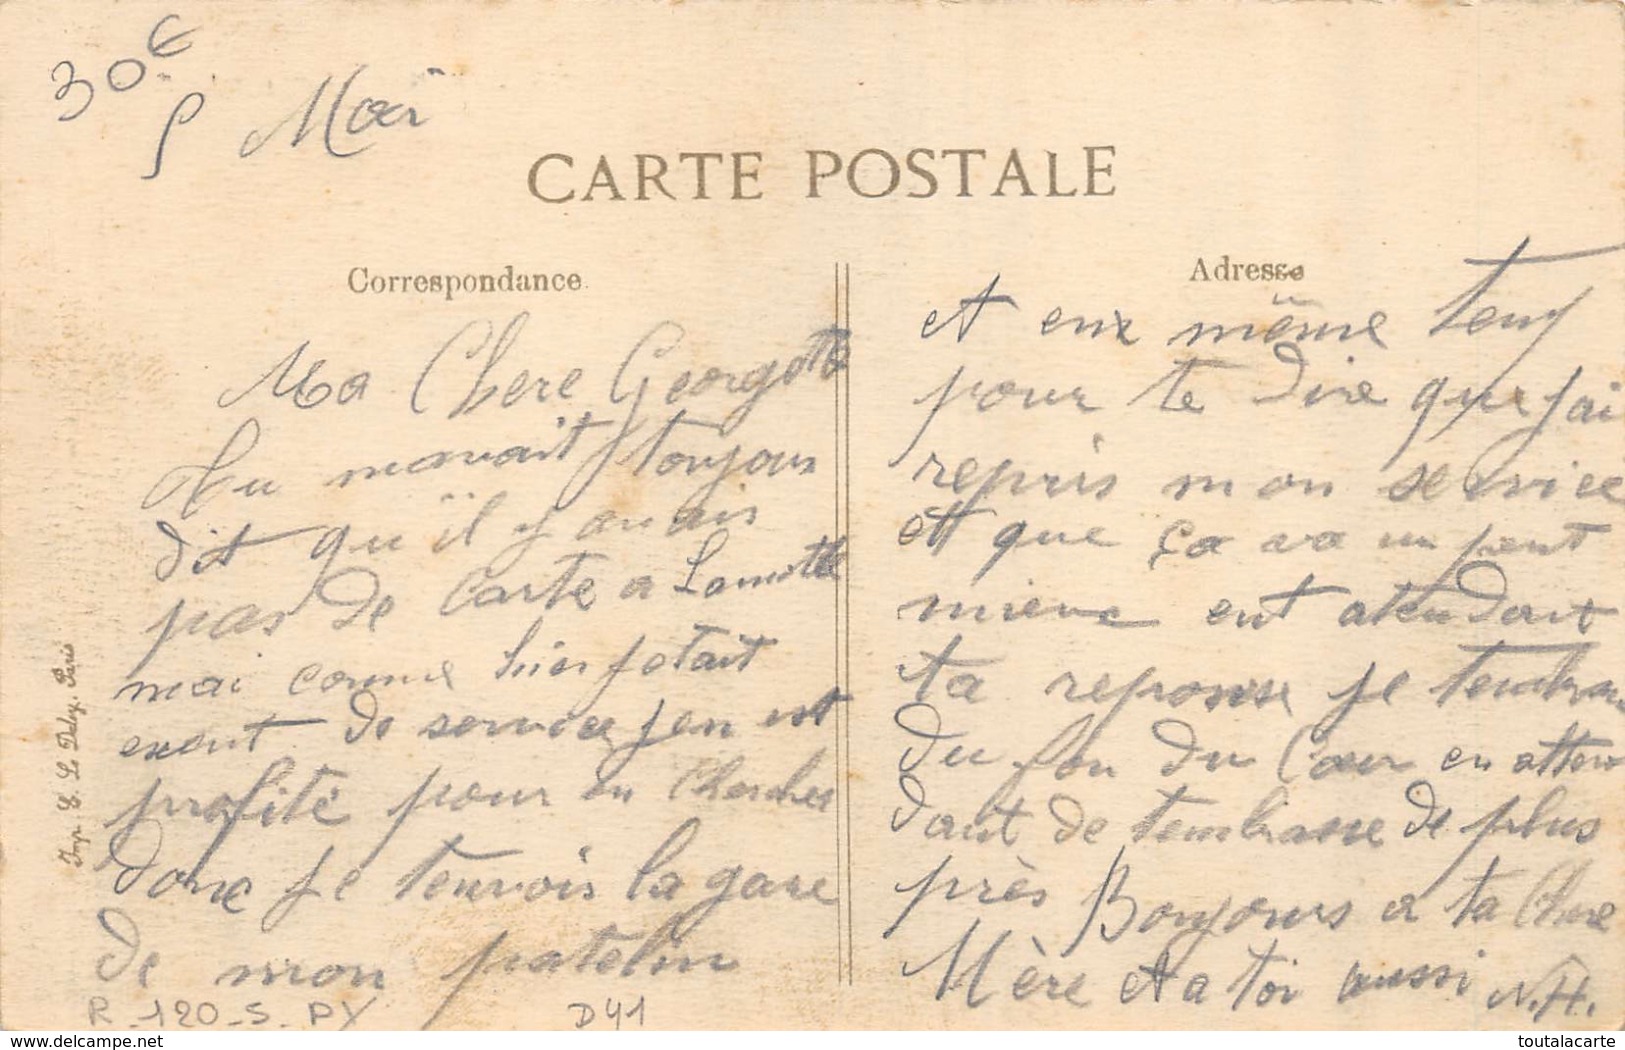 30€
5 Mai
CARTE POSTALE
Correspondance
Ma Chere Georgette
tu mavait toujours
dit qu'il y avais
pas de Carte a Lamotte
mai comme hier jetait
exent de service jen est
profité pour en Chercher
donc je tenvois la gare
de mon patelin
Adresse
et en même temp
pour te dire que jai
repris mon service
et que ça va un peut
mieux ent atendant
ta reponse je tembrasse
du fon du Cœur en atten
dant de tembrasse de plus
près Bonjours a ta Chere
Mère et a toi aussi N.H.
Imp. E. Le Deley, Paris
R_120_S_PY
D41
www.delcampe.net
toutalacarte